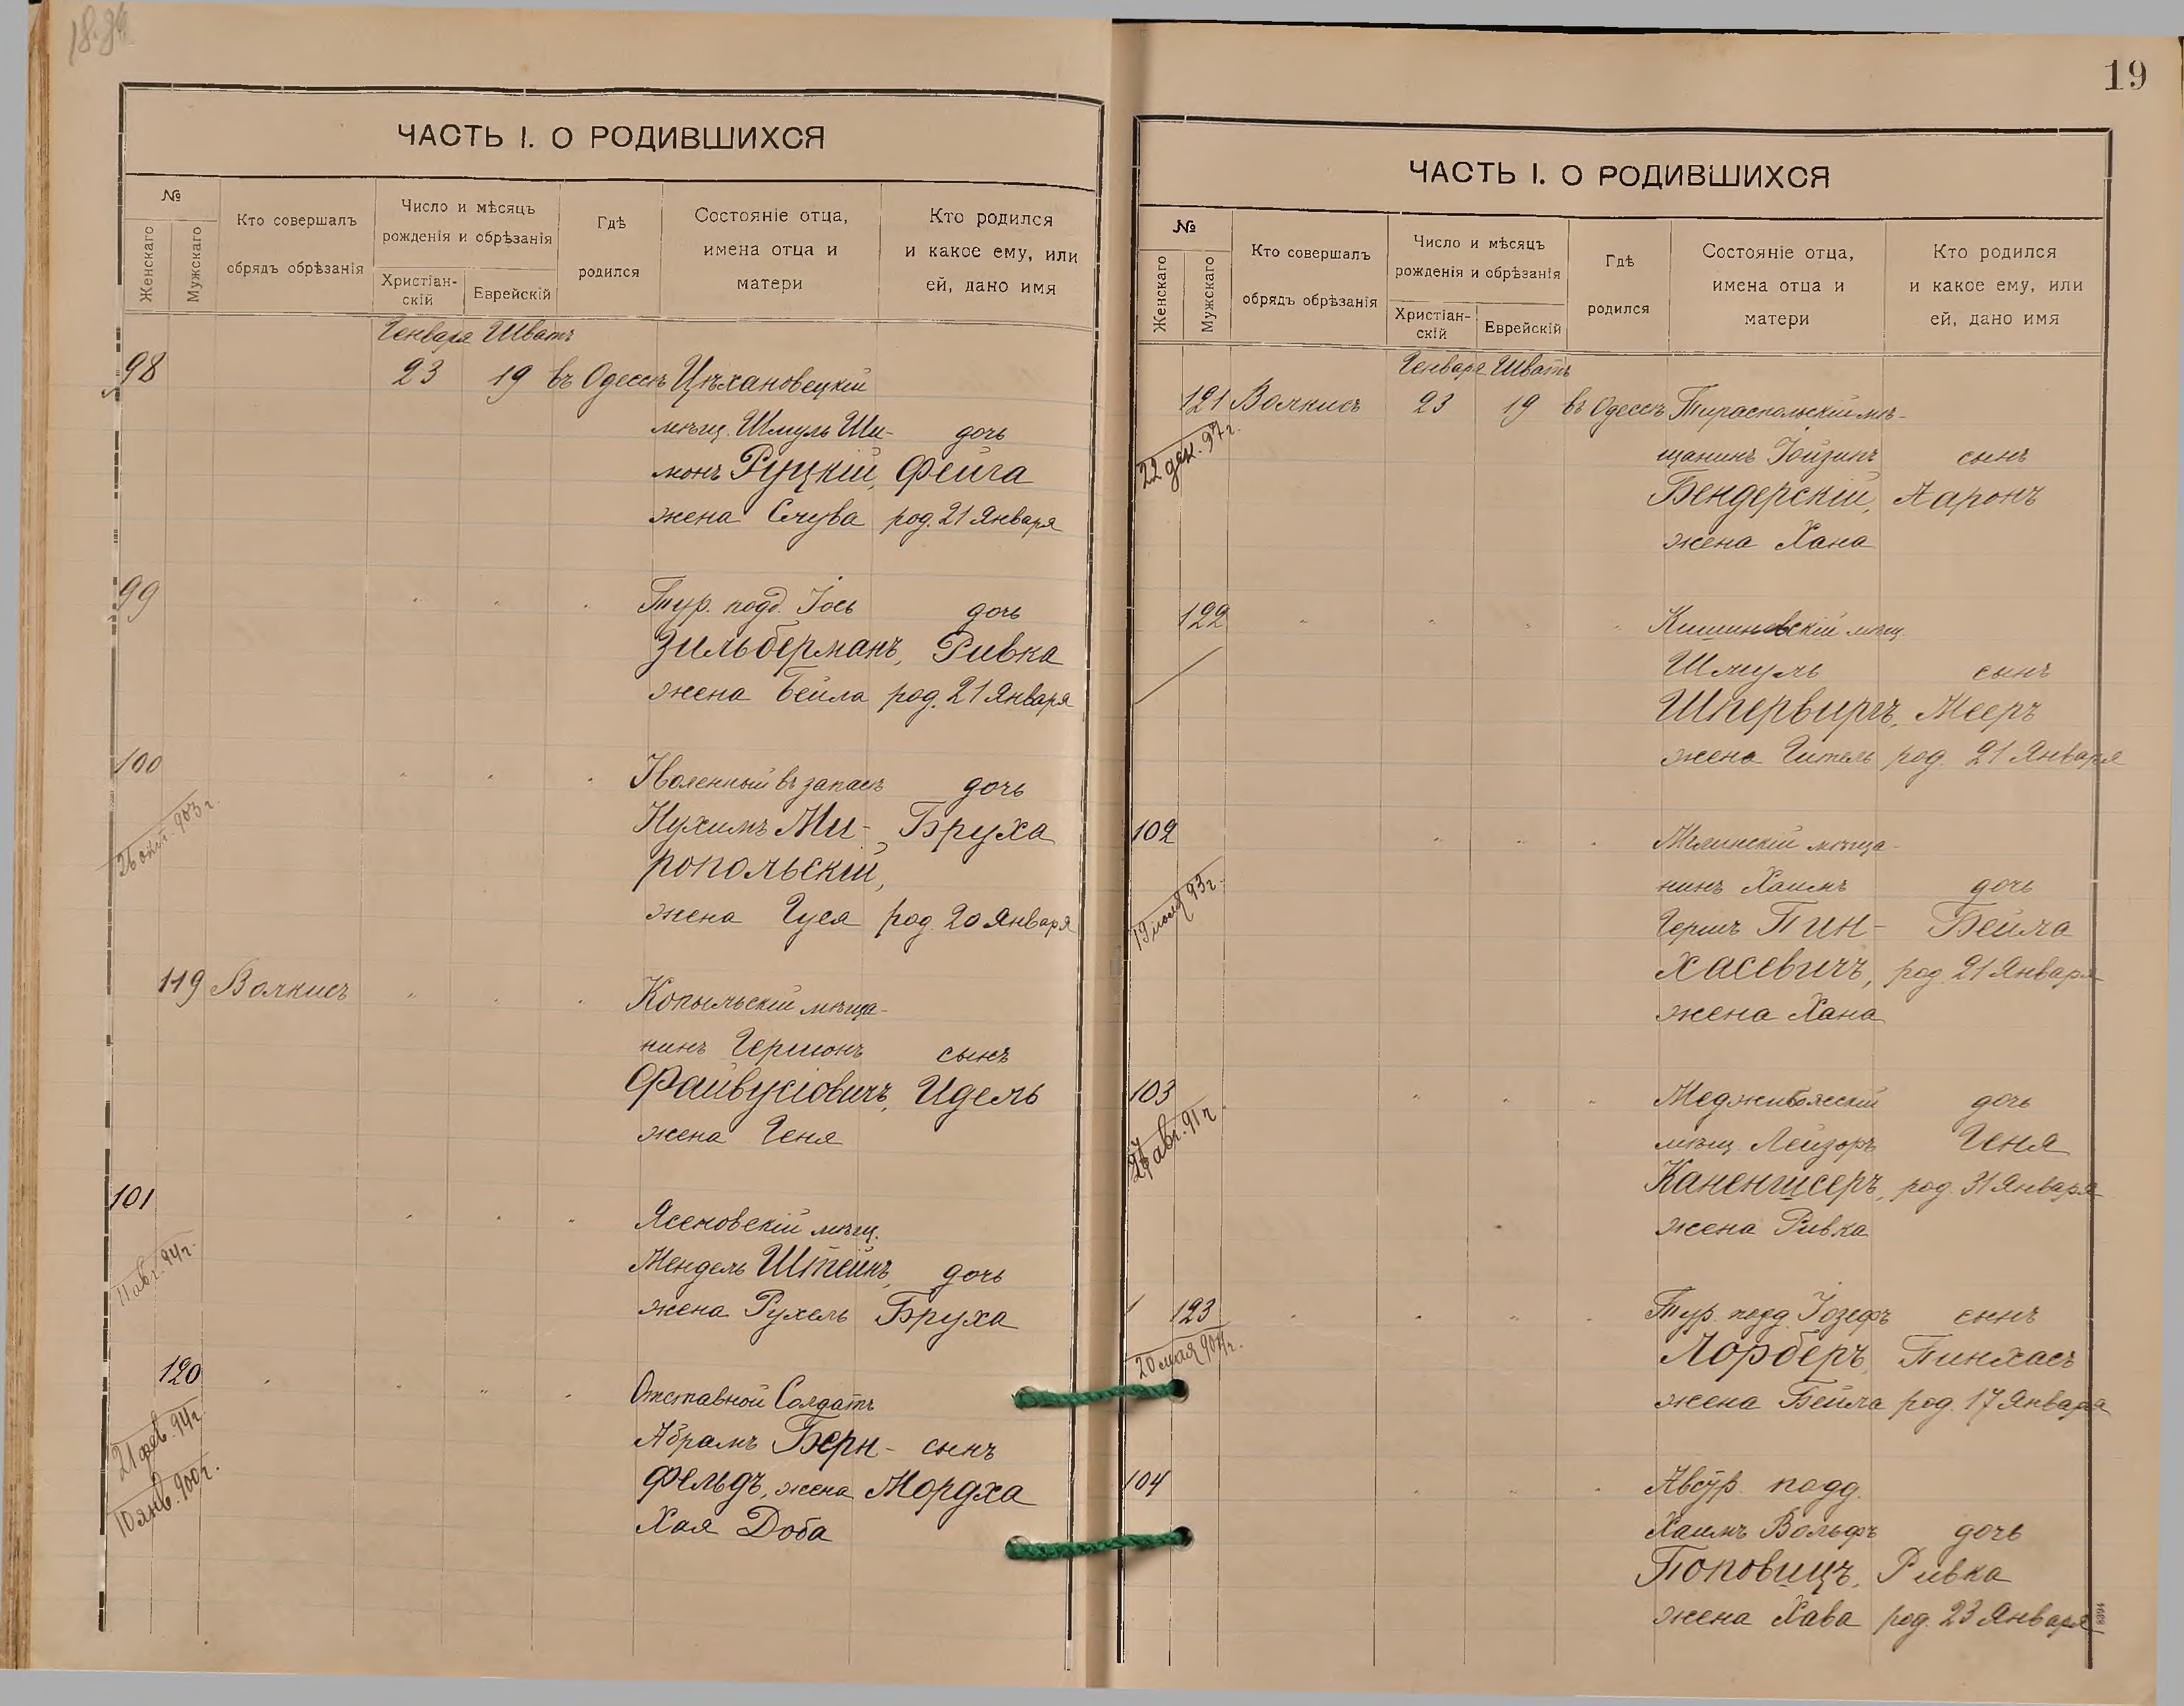 18.86
ЧАСТЬ I. О РОДИВШИХСЯ
№
Женскаго
Мужскаго
Кто совершалъ
обрядъ обрѣзанія
Число и мѣсяцъ
рожденія и обрѣзанія
Христіан-
скій
Еврейскій
Гдѣ
родился
Состояніе отца,
имена отца и
матери
Кто родился
и какое ему, или
ей, дано имя
Генваря Шватъ
98 23 19 въ Одессѣ Цѣхановецкій
мѣщ. Шмуль Ши- дочь
монъ Руцкій, Фейга
жена Слува род. 21 Января
99 Тур. подд. Іось дочь
Зильберманъ, Ривка
жена Бейла род. 21 Января
100 Уволенный въ запасъ дочь
26 окт. 903 г. Нухимъ Ми- Бруха
ропольскій,
жена Гуся род. 20 Января
119 Волкисъ Копыльскій мѣща-
нинъ Гершонъ сынъ
Файвусіовичъ, Идель
жена Геня
101 Ясеновскій мѣщ.
11 авг. 94 г. Мендель Штейнъ, дочь
жена Рухель Бруха
120 Отставной Солдатъ
21 фев. 94 г. Абрамъ Берн- сынъ
10 янв. 900 г. фельдъ, жена Мордха
Хая Доба
19
ЧАСТЬ I. О РОДИВШИХСЯ
№
Женскаго
Мужскаго
Кто совершалъ
обрядъ обрѣзанія
Число и мѣсяцъ
рожденія и обрѣзанія
Христіан-
скій
Еврейскій
Гдѣ
родился
Состояніе отца,
имена отца и
матери
Кто родился
и какое ему, или
ей, дано имя
Генваря Шватъ
121 Волкисъ 23 19 въ Одессѣ Тираспольскій мѣ-
22 дек. 97 г. щанинъ Іойзипъ сынъ
Бендерскій, Ааронъ
жена Хана
122 Кишиневскій мѣщ.
Шмуль сынъ
Шпервиргъ, Мееръ
жена Гитель род. 21 Января
102 Мглинскій мѣща-
19 июля 93 г. нинъ Хаимъ дочь
Гершъ Пин- Бейла
хасевичъ, род. 21 Января
жена Хана
103 Меджибожскій дочь
авг. 91 г. мѣщ. Лейзоръ Геня
Каненгисеръ, род. 31 Января
жена Ривка
123 Тур. подд. Іозефъ сынъ
20 мая 904 г. Лорберъ, Пинхасъ
жена Бейла род. 17 Января
104 Австр. подд.
Хаимъ Вольфъ дочь
Поповицъ, Ривка
жена Хава род. 23 Января